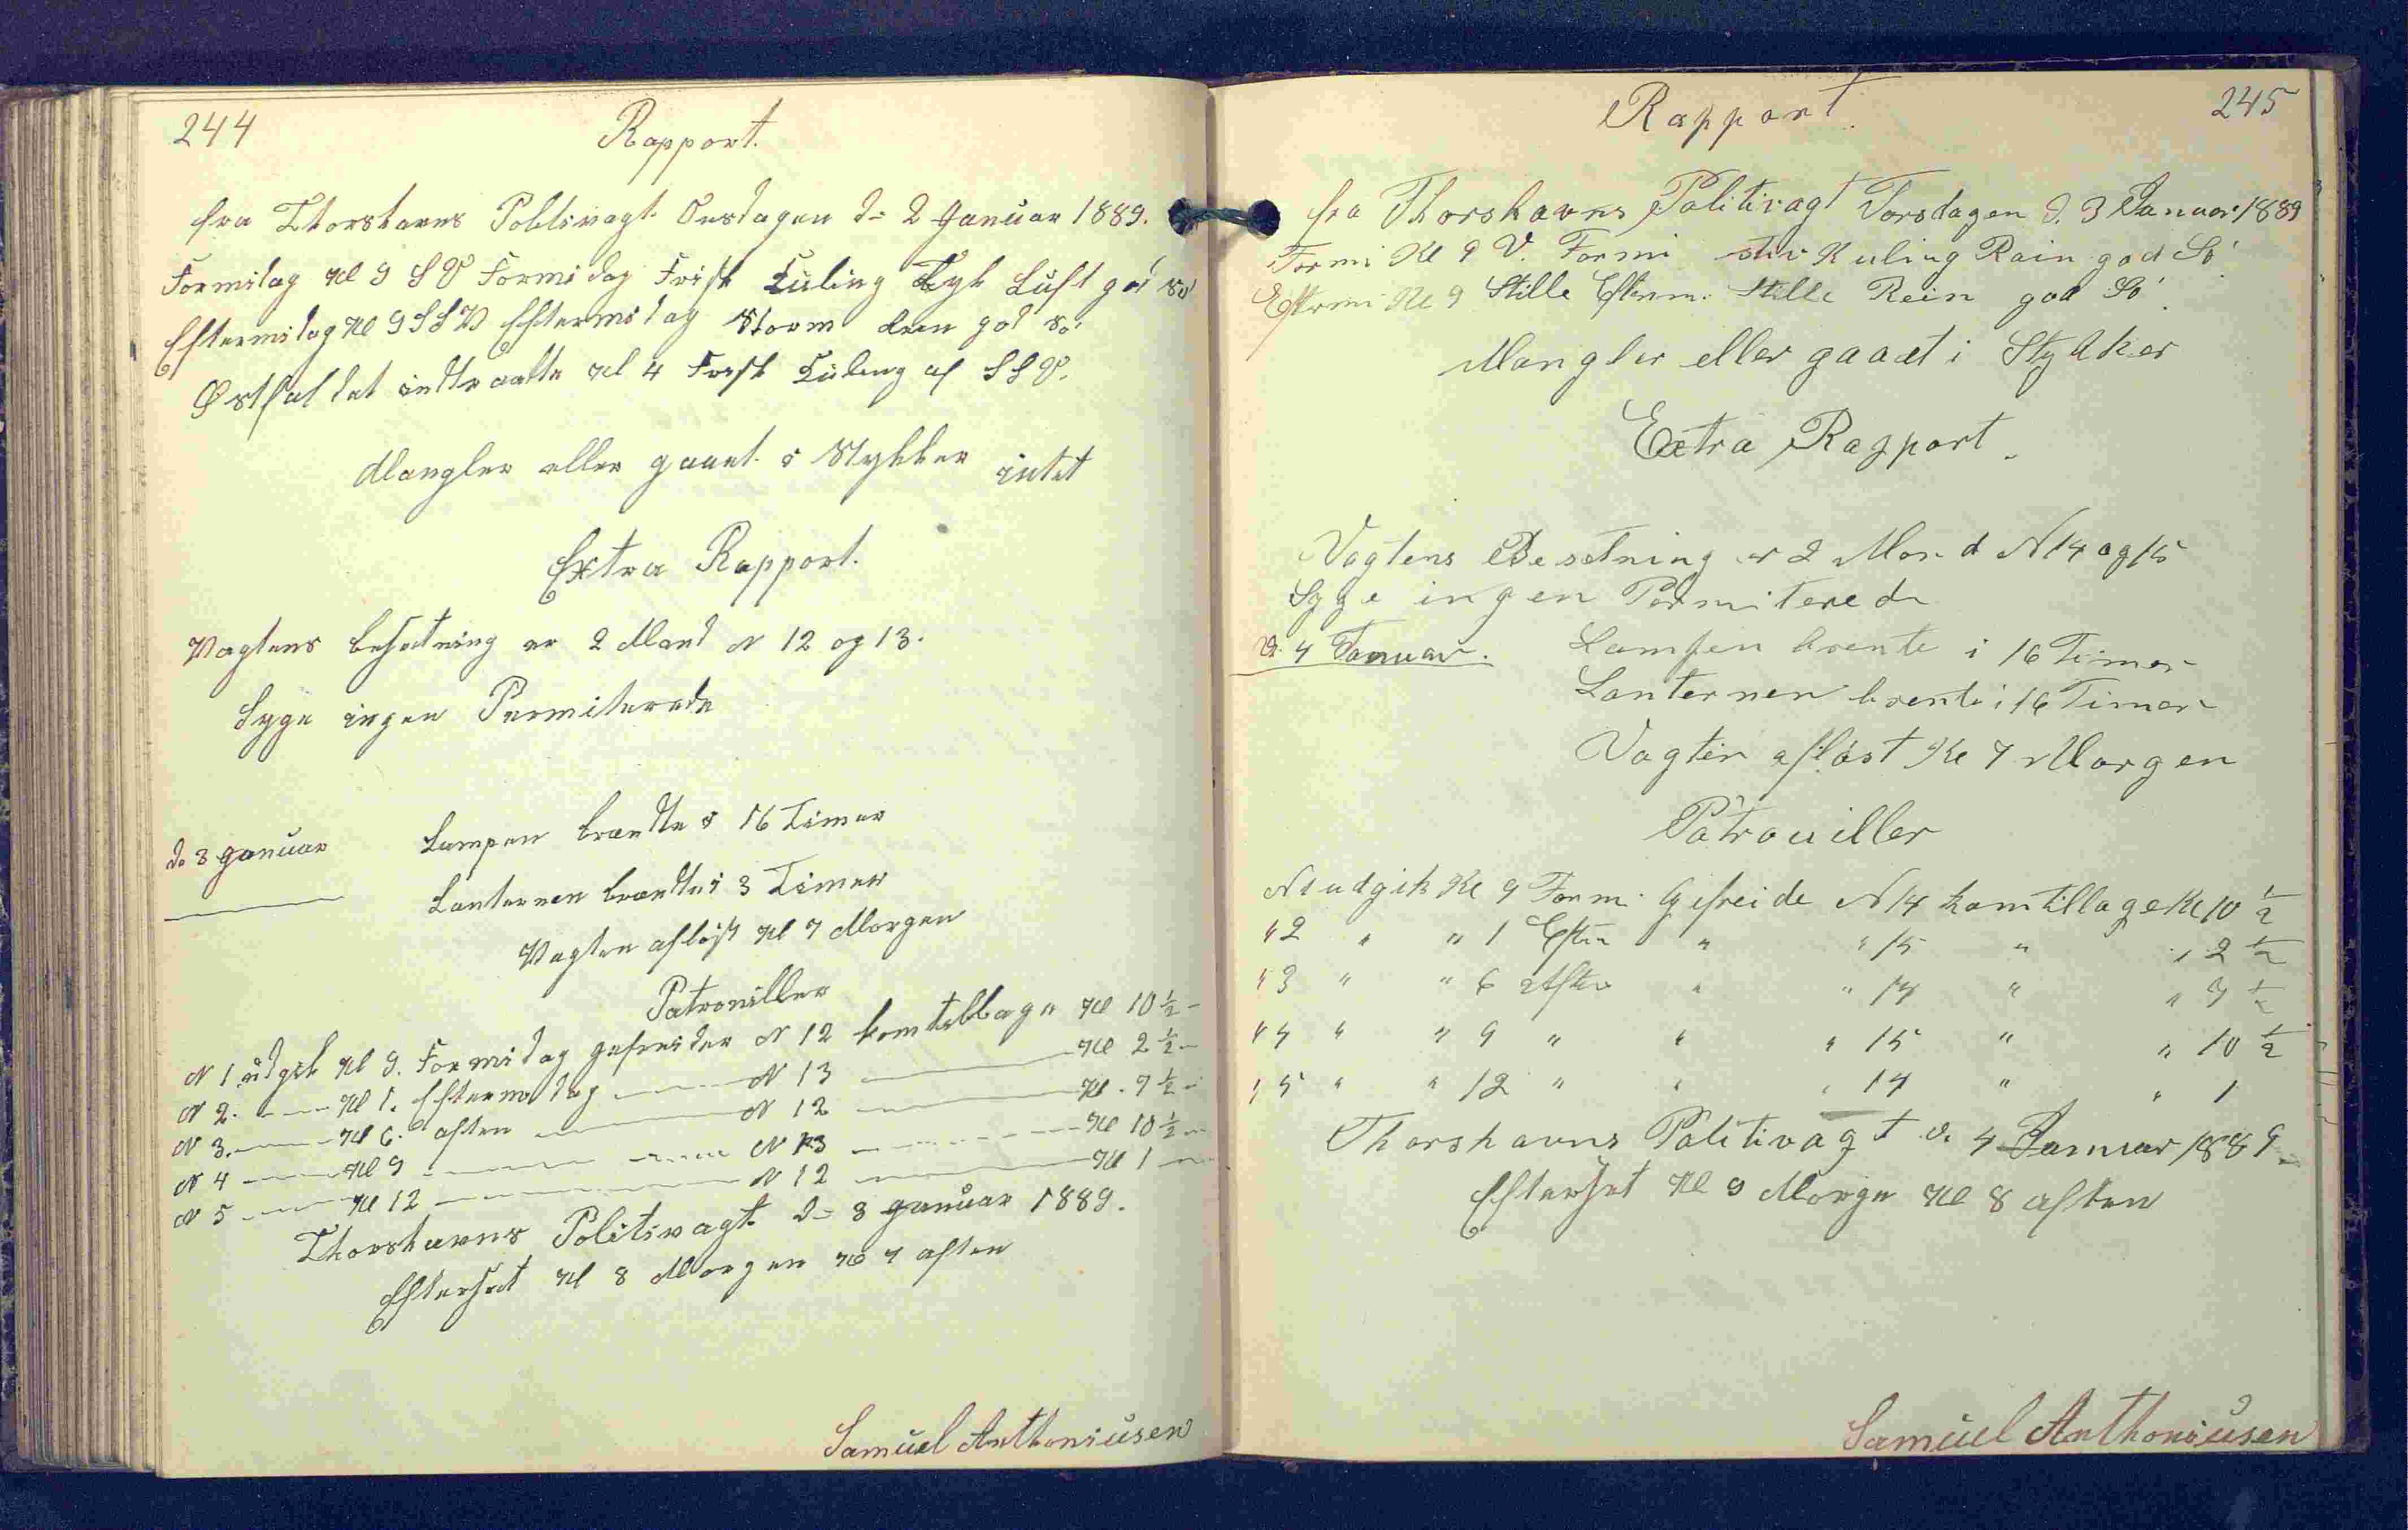 244
Rapport.
fra Thorshavns Politivagt Onsdagen d= 2 Januar 1889.
Formidag Kl 9 SV Formidag Frisk Kuling Tyk Luft god Sø
Eftermidag Kl 9 SSV Eftermidag Storm Reen god Sø
Østfaldet indtraadte Kl 4 Frisk Kuling af SSV.
Mangler eller gaaet i Stykker intet
Extra Rapport.
Vagtens besætning er 2 Mand N 12 og 13.
Syge ingen Permiterede
d. 3 Januar Lampen brændte i 16 Timer
Lanternen brændte i 3 Timer
Vagten afløst Kl 7 Morgen
Patrouiller
N 1 udgik Kl 9. Formidag gefreider N 12 kom tilbage Kl 10 1/2 -
N 2. Kl 1. Eftermidag N 13 Kl 2 1/2 -
N 3. Kl 6. aften N 12 Kl. 7 1/2 -
N 4 Kl 9 N 13 Kl 10 1/2
N 5 Kl 12 N 12 Kl 1
Thorshavns Politivagt d= 3 Januar 1889.
Efterset Kl 8 Morgen Kl 7 aften
Samuel Anthoniusen
245
Rapport.
fra Thorshavns Politivagt Torsdagen d. 3 Januar 1889
Formi Kl 9 V. Formi stiv Kuling Rein god Sö
Eftermi Kl 9 Stille Efterm. Stille Rein god Sö
Mangler eller gaaet i Stykker
Extra Rapport.
Vagtens Besetning er 2 Mand N 14 og 15
Syge ingen Permiterede
d. 4 Januar. Lampen brente i 16 Timer
Lanternen brente i 16 Timer
Vagten afløst Kl 7 Morgen
Patrouiller
N 1 udgik Kl 9 Form. Gefreide N 14 kom tillage Kl 10 1/2
" 2 " " 1 Efter " " 15 " " 2 1/2
" 3 " " 6 Aften " " 14 " " 7 1/2
" 4 " " 9 " " " 15 " " 10 1/2
" 5 " " 12 " " " 14 " " 1
Thorshavns Politivagt d. 4 Januar 1889.
Efterset Kl 9 Morge Kl 8 aften
Samuel Anthoniusen